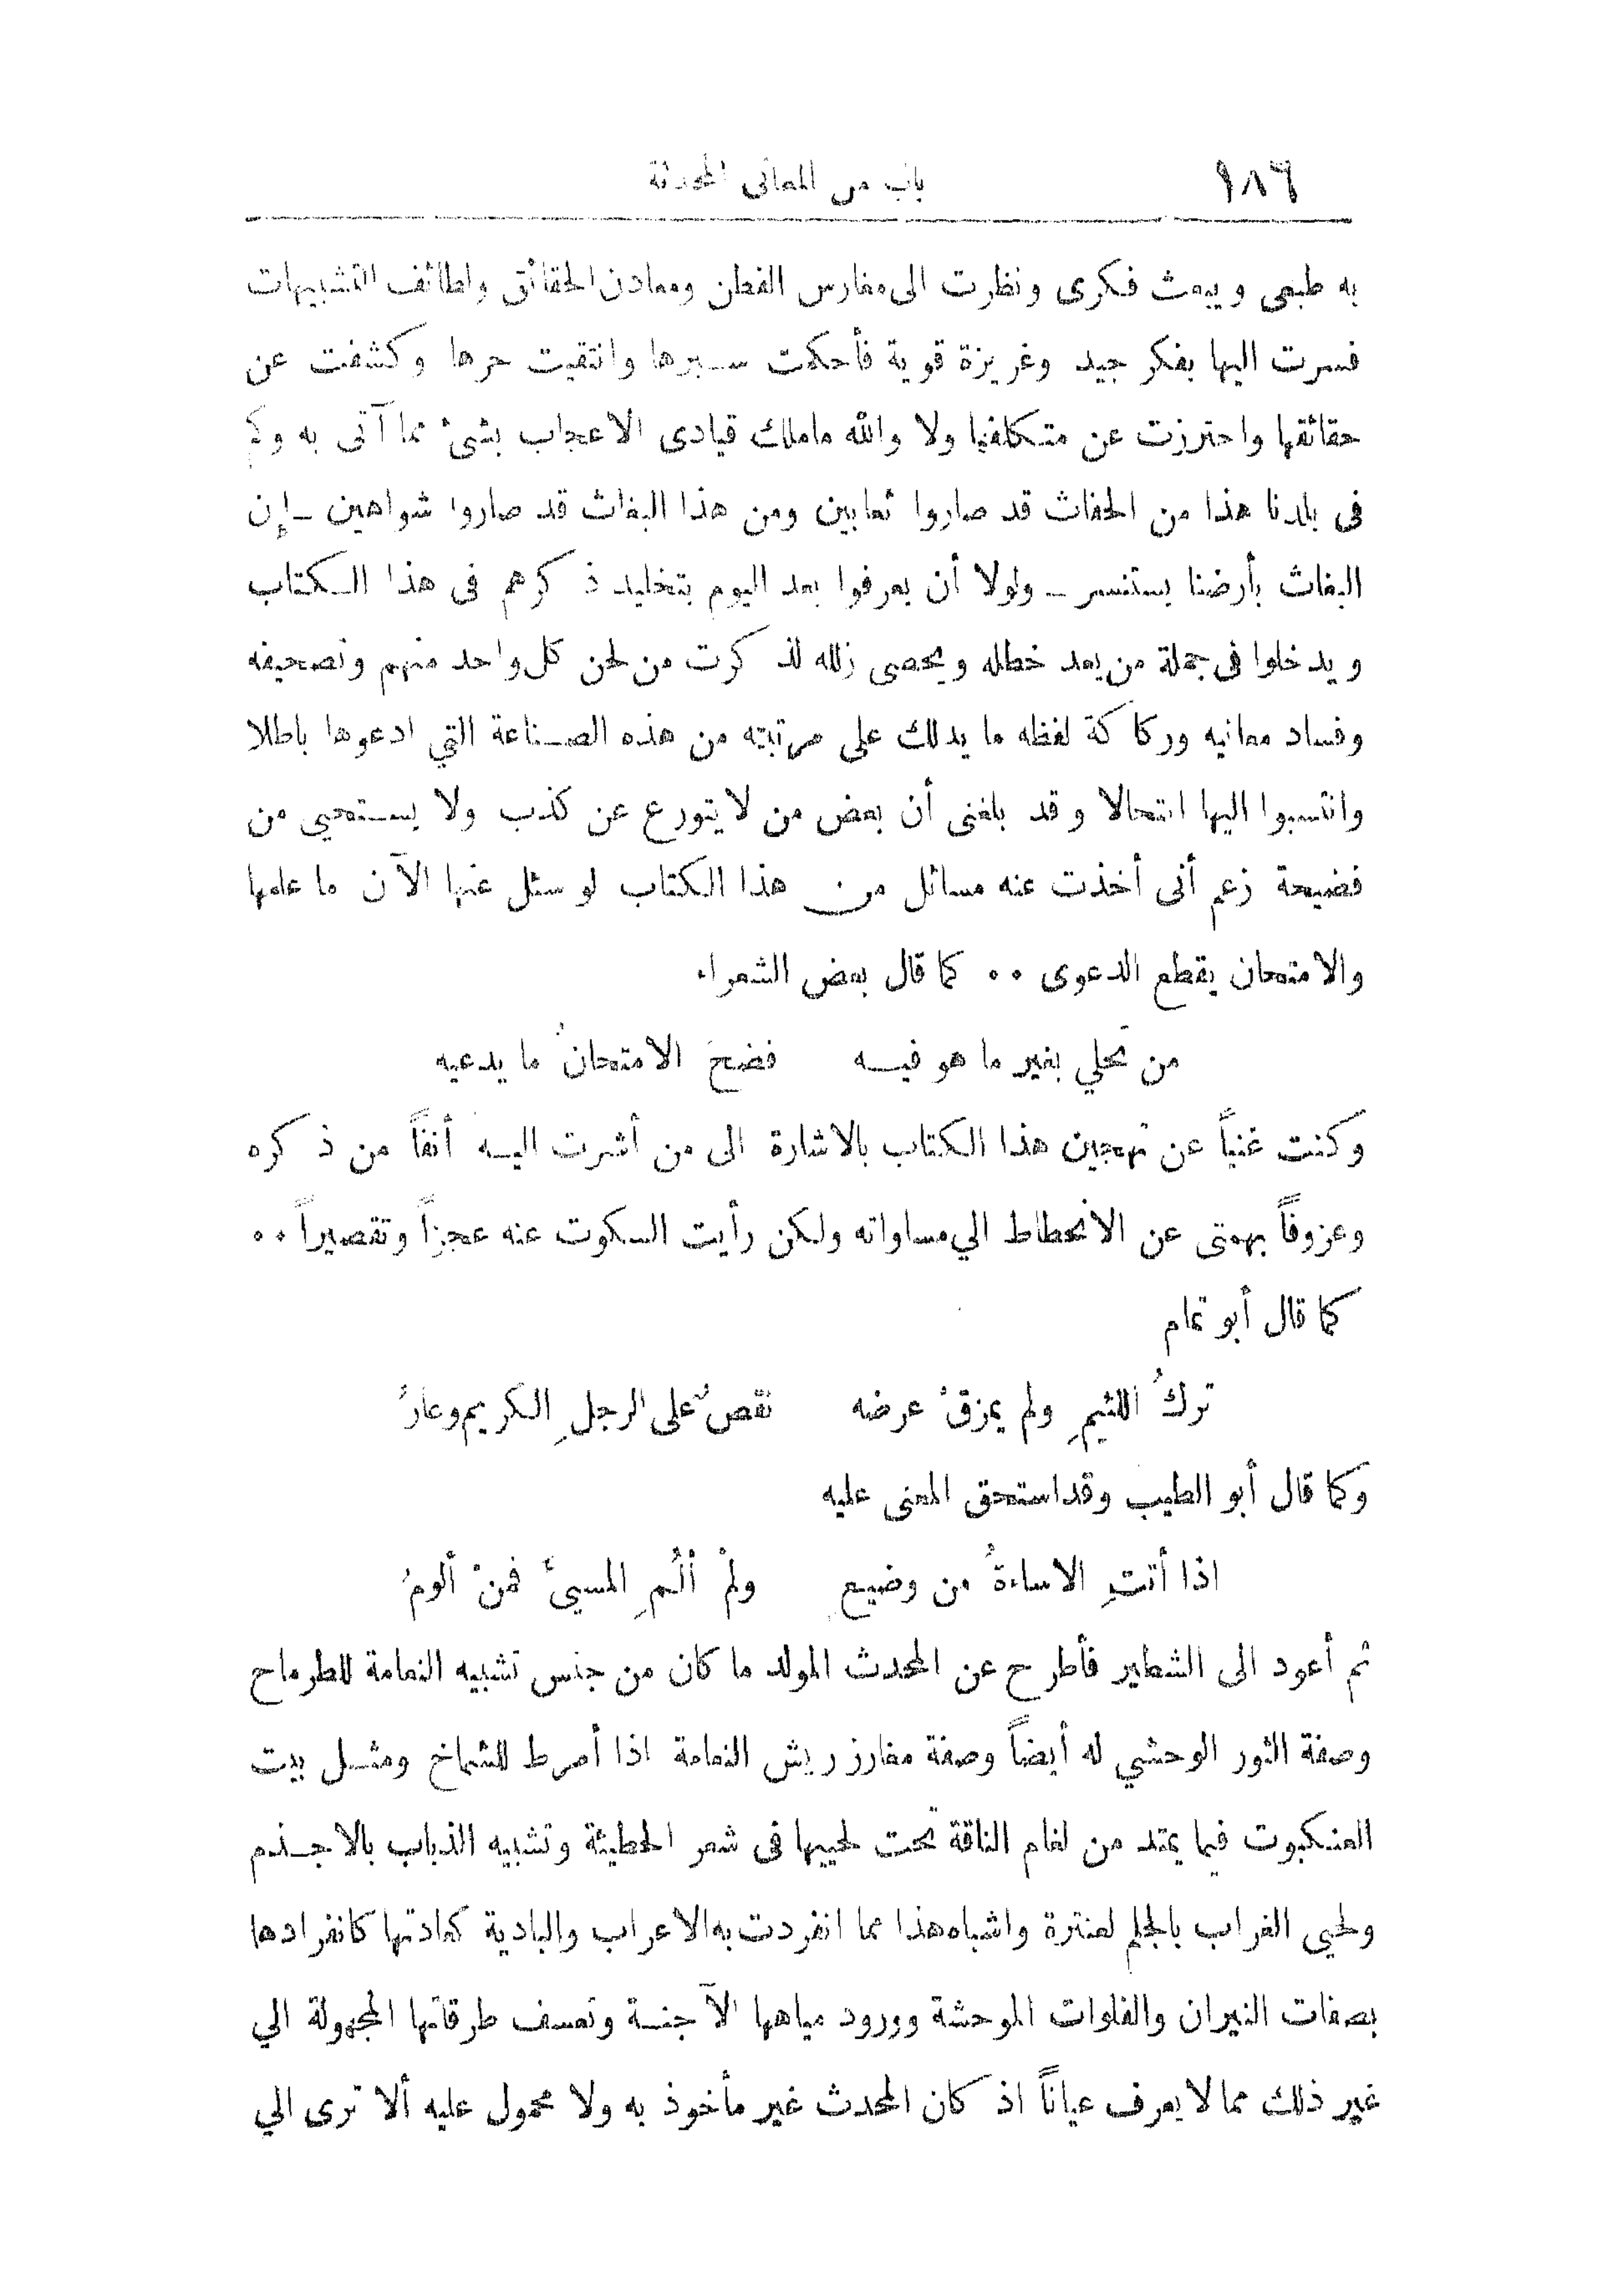 ١٨٦
باب من المعانى المحدثة
به طبعى ويبعث فكرى ونظرت الى مغارس الفطن ومعادن الحقائق ولطائف التشبيهات
فسرت اليها بفكر جيد وغريزة قوية فأحكمت سبرها وانتقيت حرها وكشفت عن
حقائقها واحترزت عن متكلفها ولا والله ماملك قيادى الاعجاب بشئ مما آتى به وكم
فى بلدنا هذا من الحفاث قد صاروا ثعابين ومن هذا البغاث قد صاروا شواهين ـ إن
البغاث بأرضنا يستنسر ـ ولولا أن يعرفوا بعد اليوم بتخليد ذكرهم فى هذا الكتاب
ويدخلوا فى جملة من يعد خطله ويحصى زلله لذكرت من لحن كل واحد منهم وتصحيفه
وفساد معانيه وركاكة لفظه ما يدلك على مرتبته من هذه الصناعة التي ادعوها باطلا
وانتسبوا اليها انتحالا وقد بلغنى أن بعض من لا يتورع عن كذب ولا يستحيي من
فضيحة زعم أنى أخذت عنه مسائل من هذا الكتاب لو سئل عنها الآن ما علمها
والامتحان يقطع الدعوى ٠٠ كما قال بعض الشعراء
من تحلي بغير ما هو فيه فضحَ الامتحانُ ما يدعيه
وكنت غنياً عن تهجين هذا الكتاب بالاشارة الى من أشرت اليه أنفاً من ذكره
وعزوفاً بهمتى عن الانحطاط الي مساواته ولكن رأيت السكوت عنه عجزاً وتقصيراً ٠٠
كما قال أبو تمام
تركُ اللئيمِ ولم يمزقْ عرضه نقصٌ على الرجلِ الكريم وعارُ
وكما قال أبو الطيب وقد استحق المعنى عليه
اذا أتتِ الاساءةُ من وضيع ولمْ ألُمِ المسيئَ فمنْ ألومُ
ثم أعود الى الشطير فأطرح عن المحدث المولد ما كان من جنس تشبيه النعامة للطرماح
وصفة الثور الوحشي له أيضاً وصفة مغارز ريش النعامة اذا أمرط للشماخ ومثل بيت
العنكبوت فيما يمتد من لغام الناقة تحت لحييها فى شعر الحطيئة وتشبيه الذباب بالاجذم
ولحيى الغراب بالجلم لعنترة واشباه هذا مما انفردت به الاعراب والبادية كعادتها كانفرادها
بصفات النيران والفلوات الموحشة وورود مياهها الآجنة وتعسف طرقاتها المجهولة الي
غير ذلك مما لا يعرف عياناً اذ كان المحدث غير مأخوذ به ولا محمول عليه ألا ترى الي